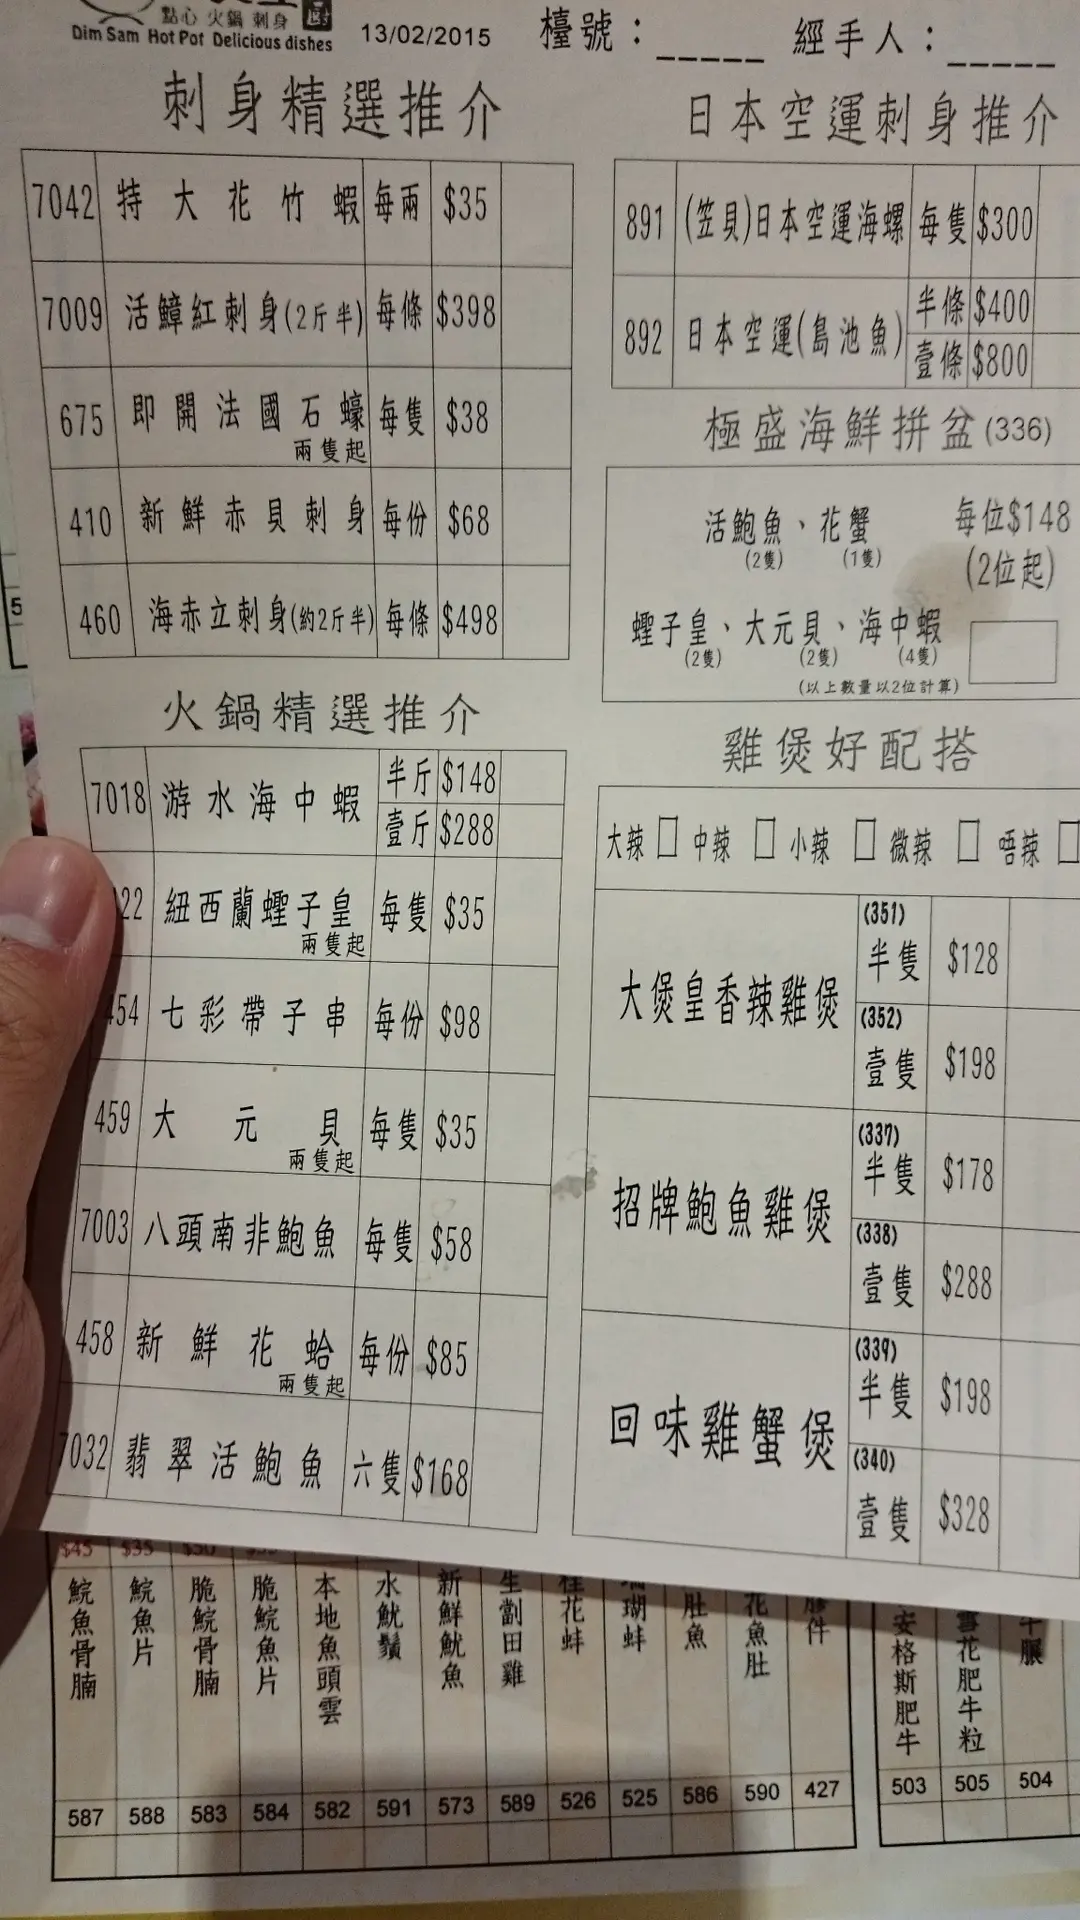 點心 火鍋 刺身
Dim Sam Hot Pot Delicious dishes
13/02/2015
檯號：_____ 經手人：_____
刺身精選推介
7042 特大花竹蝦 每兩 $35
7009 活鱆紅刺身(2斤半) 每條 $398
675 即開法國石蠔 每隻 $38
兩隻起
410 新鮮赤貝刺身 每份 $68
460 海赤立刺身(約2斤半) 每條 $498
火鍋精選推介
7018 游水海中蝦 半斤 $148
壹斤 $288
22 紐西蘭蟶子皇 每隻 $35
兩隻起
454 七彩帶子串 每份 $98
459 大元貝 每隻 $35
兩隻起
7003 八頭南非鮑魚 每隻 $58
458 新鮮花蛤 每份 $85
兩隻起
7032 翡翠活鮑魚 六隻 $168
日本空運刺身推介
891 (笠貝)日本空運海螺 每隻 $300
892 日本空運(島池魚) 半條 $400
壹條 $800
極盛海鮮拼盆(336)
活鮑魚、花蟹 每位$148
(2隻) (1隻) (2位起)
蟶子皇、大元貝、海中蝦
(2隻) (2隻) (4隻)
(以上數量以2位計算)
雞煲好配搭
大辣 □ 中辣 □ 小辣 □ 微辣 □ 唔辣 □
大煲皇香辣雞煲 (351) 半隻 $128
(352) 壹隻 $198
招牌鮑魚雞煲 (337) 半隻 $178
(338) 壹隻 $288
回味雞蟹煲 (339) 半隻 $198
(340) 壹隻 $328
$45 $35 $50
鯇魚骨腩 587
鯇魚片 588
脆鯇魚骨腩 583
脆鯇魚片 584
本地魚頭雲 582
水魷鬚 591
新鮮魷魚 573
生劏田雞 589
桂花蚌 526
珊瑚蚌 525
肚魚 586
花魚肚 590
膠件 427
安格斯肥牛 503
雪花肥牛粒 505
牛𦟌 504